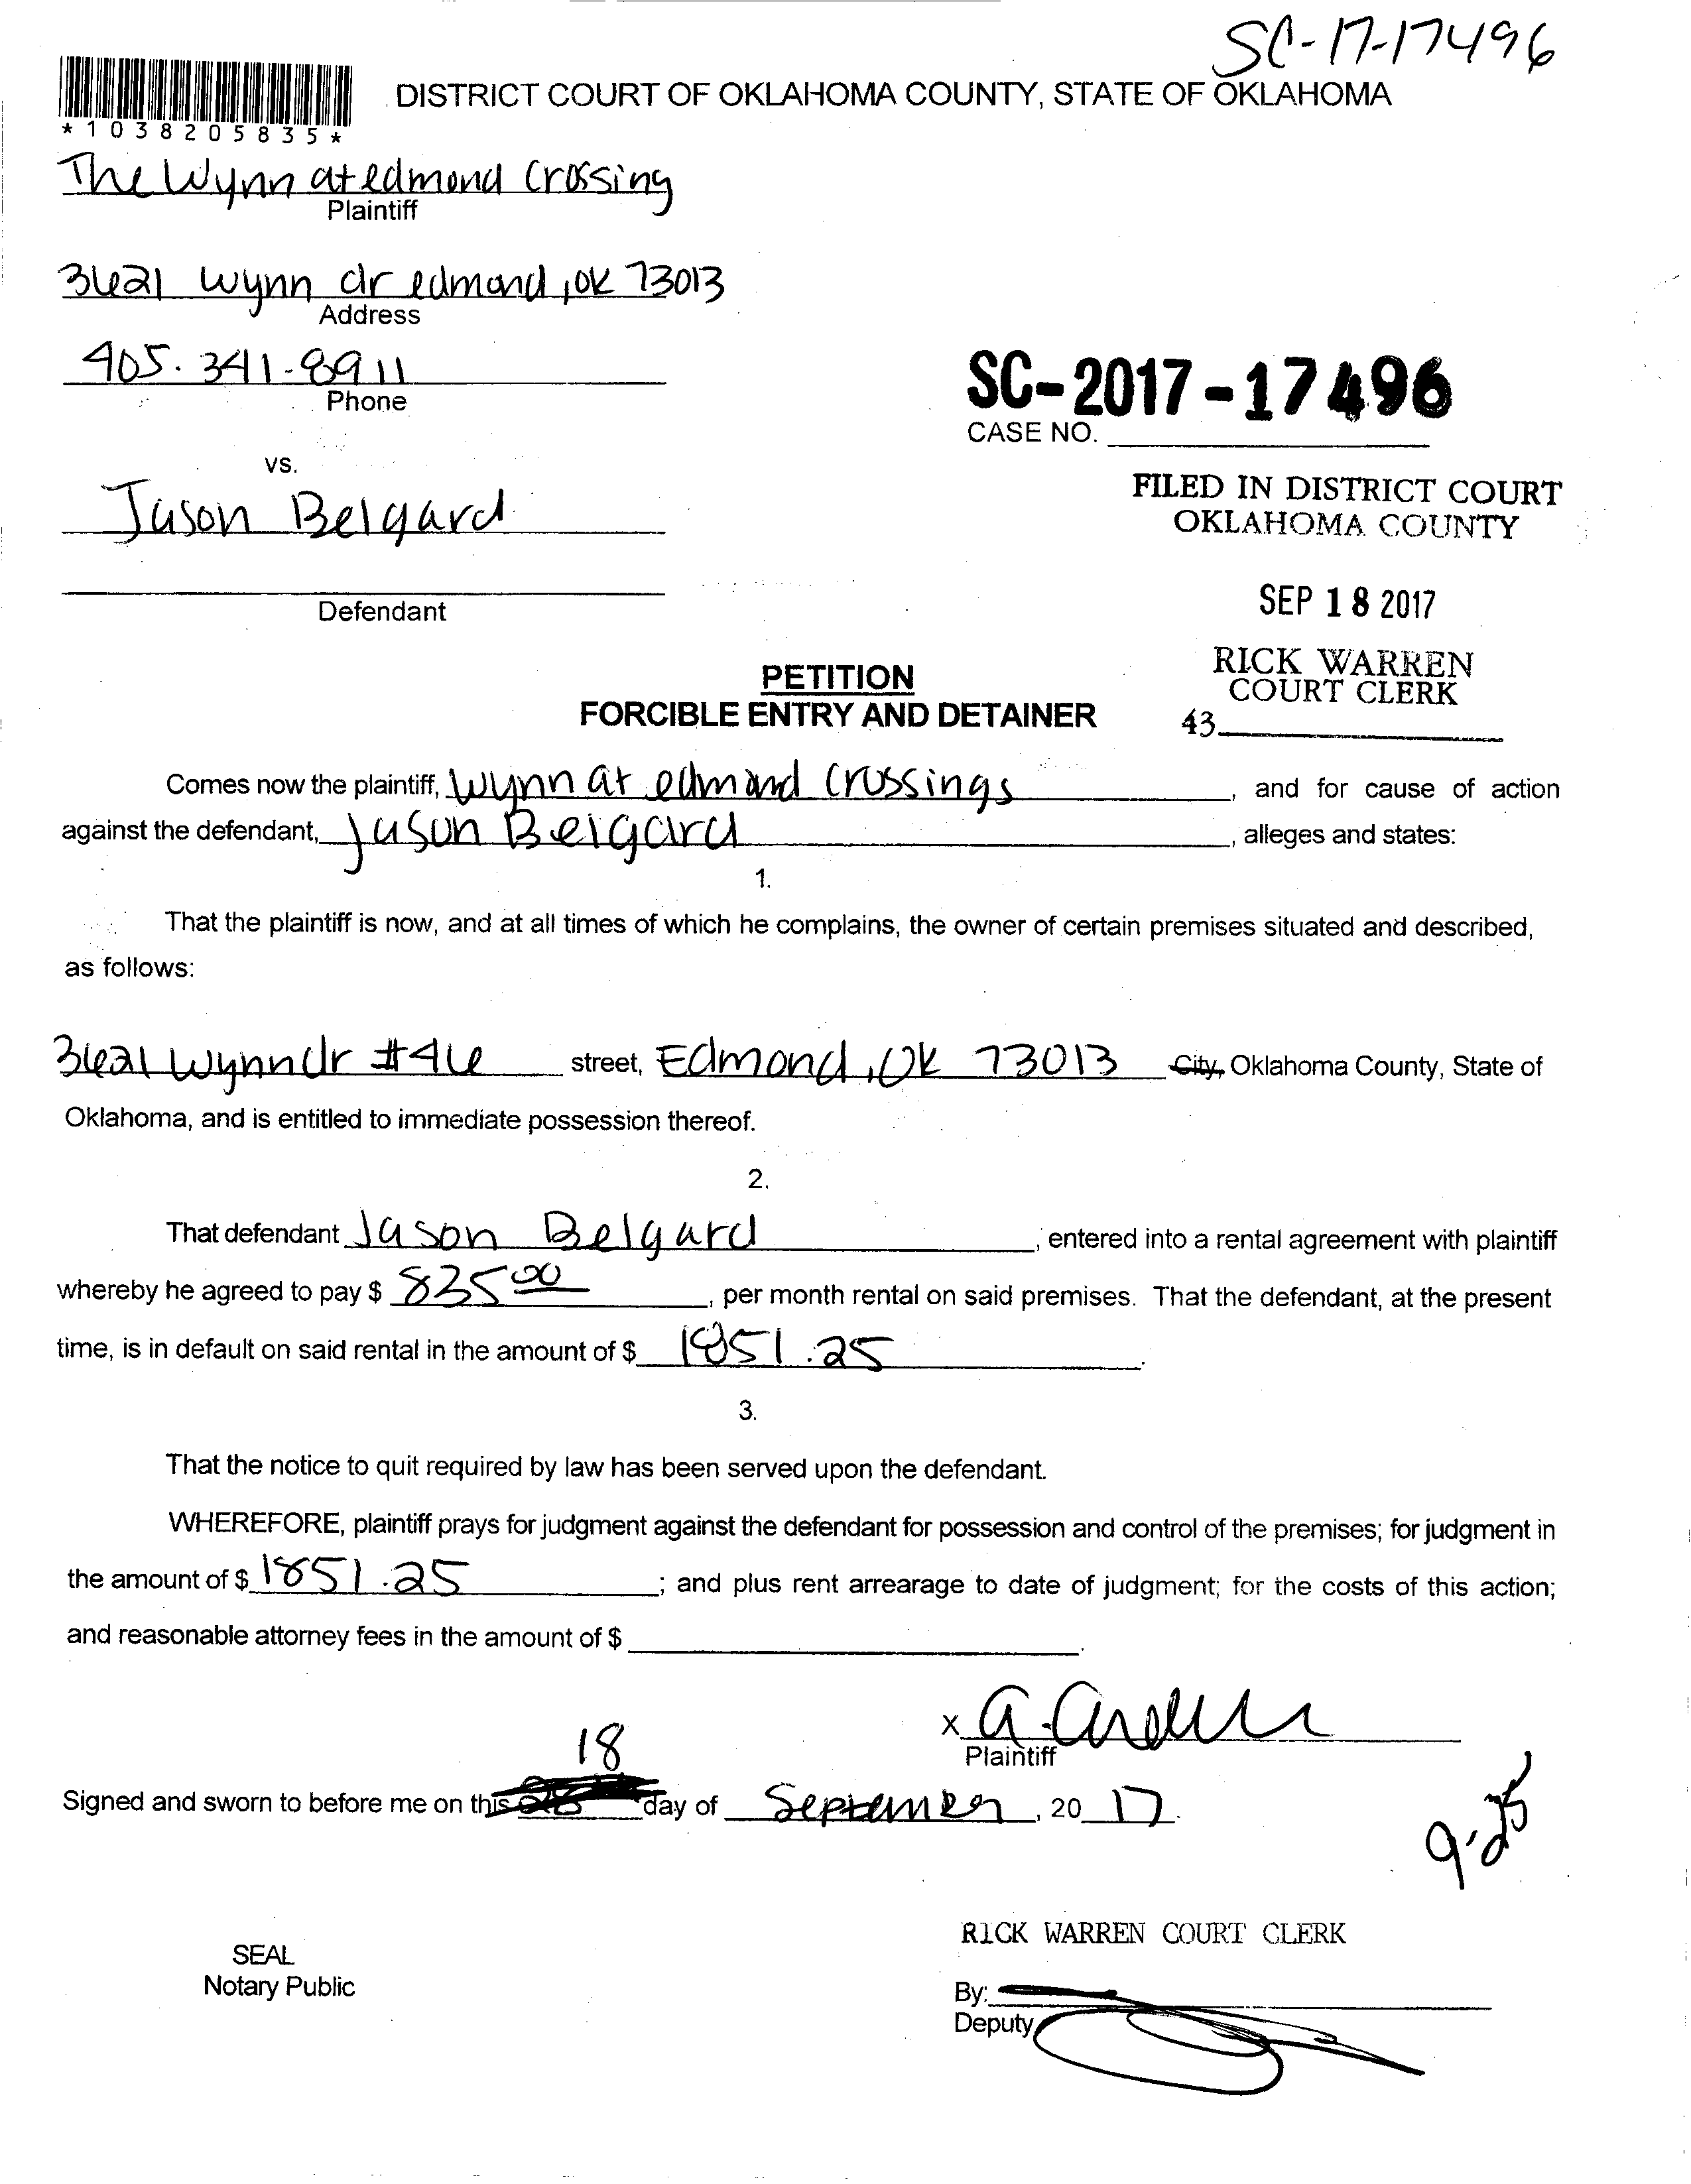 SC-17-17496
DISTRICT COURT OF OKLAHOMA COUNTY, STATE OF OKLAHOMA
*1038205835*
The Wynn at edmond Crossing
Plaintiff
3621 Wynn dr edmond, OK 73013
Address
405.341-8911
Phone
SC-2017-17496
CASE NO.
vs.
Jason Belgard
Defendant
FILED IN DISTRICT COURT
OKLAHOMA COUNTY
SEP 18 2017
RICK WARREN
COURT CLERK
43
PETITION
FORCIBLE ENTRY AND DETAINER
Comes now the plaintiff, Wynn at edmond Crossings, and for cause of action
against the defendant, Jason Belgard, alleges and states:
1.
That the plaintiff is now, and at all times of which he complains, the owner of certain premises situated and described,
as follows:
3621 Wynn dr #46 street, Edmond, OK 73013 City, Oklahoma County, State of
Oklahoma, and is entitled to immediate possession thereof.
2.
That defendant Jason Belgard, entered into a rental agreement with plaintiff
whereby he agreed to pay $ 835 00, per month rental on said premises. That the defendant, at the present
time, is in default on said rental in the amount of $ 1851.25.
3.
That the notice to quit required by law has been served upon the defendant.
WHEREFORE, plaintiff prays for judgment against the defendant for possession and control of the premises; for judgment in
the amount of $ 1851.25; and plus rent arrearage to date of judgment; for the costs of this action;
and reasonable attorney fees in the amount of $.
x
Plaintiff
18
Signed and sworn to before me on this day of September, 20 17.
9-25
RICK WARREN COURT CLERK
SEAL
Notary Public
By:
Deputy